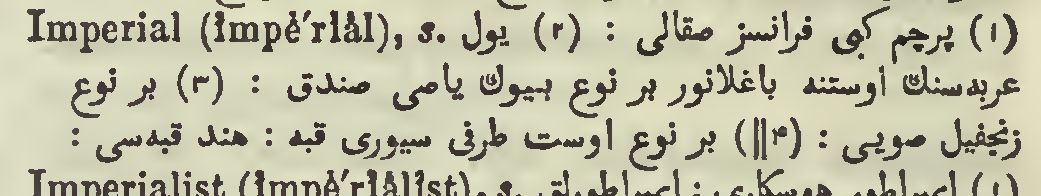 Imperial (împê′rîâl), s. (۱) پرچم كبی فرانسز صقالی : (۲) یول
عربه‌سنك اوستنه باغلانور بر نوع بیوك یاصی صندق : (۳) بر نوع
زنجفیل صویی : (۴||) بر نوع اوست طرفی سیوری قبه : هند قبه‌سی :
Imperialist (împê′rîâlîst), s. (۱) ایمپراطور هوسكاری : ایمپراطورلق